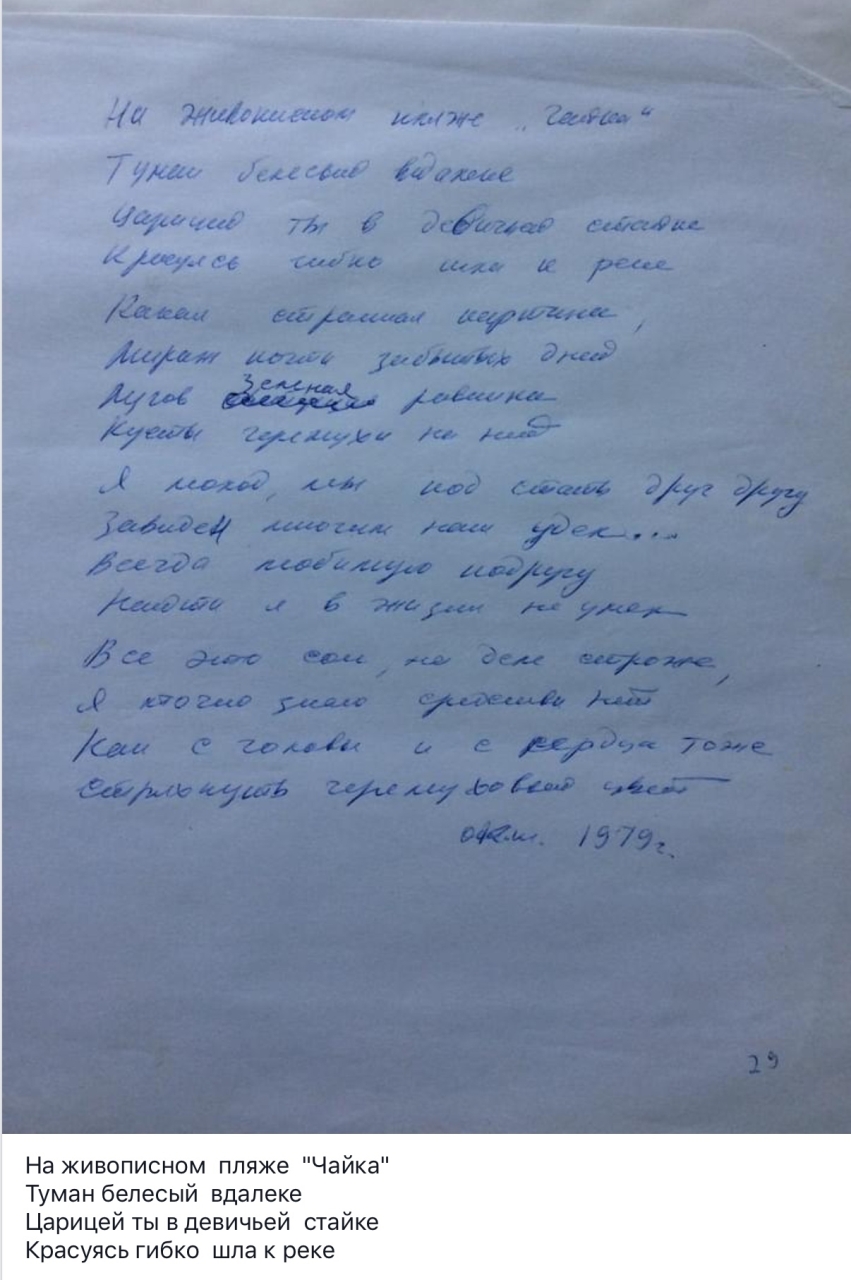 На живописном пляже „Чайка"
Туман белесый вдалеке
Царицей ты в девичьей стайке
Красуясь гибко шла к реке
Какая страшная картина,
Мираж почти забытых дней
Лугов зеленая равнина
Кусты черемухи на ней
Я молод, мы под стать друг другу
Завиден многим наш удел...
Всегда любимую подругу
Найти я в жизни не умел
Все это сон, на деле строже,
Я точно знаю средства нет
Как с головы и с сердца тоже
Стряхнуть черемуховый цвет
окт. 1979г.
29
На живописном пляже "Чайка"
Туман белесый вдалеке
Царицей ты в девичьей стайке
Красуясь гибко шла к реке